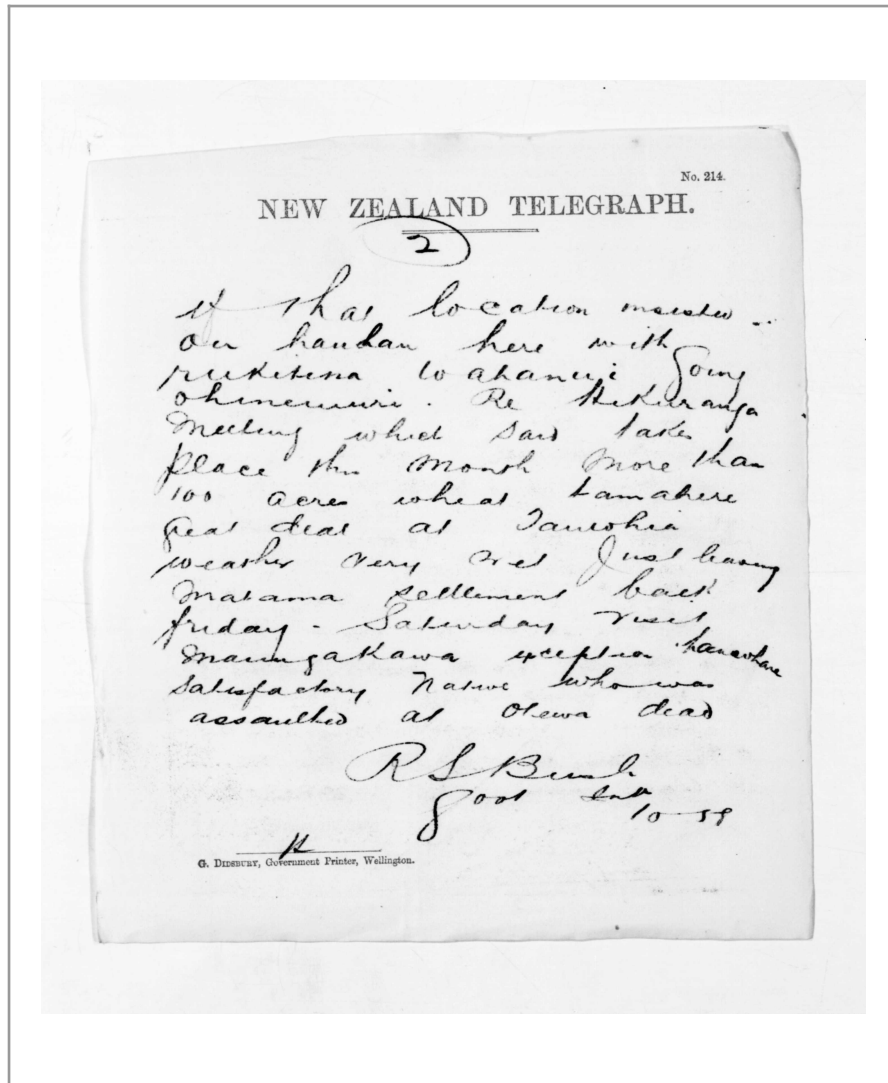 No. 214.
NEW ZEALAND TELEGRAPH.
2
If that location insisted
on hauhau here with
going
ohinemuri. Re Hikurangi
Meeting which said takes
place this month More than
100 acres wheat tamahere
great deal at
weather very wet Just leaving
Matama settlement back
friday - Saturday visit
Maungakawa exception
satisfactory Native who was
assaulted at Otewa dead
R S Bush
Govt
G. DIDSBURY, Government Printer, Wellington.